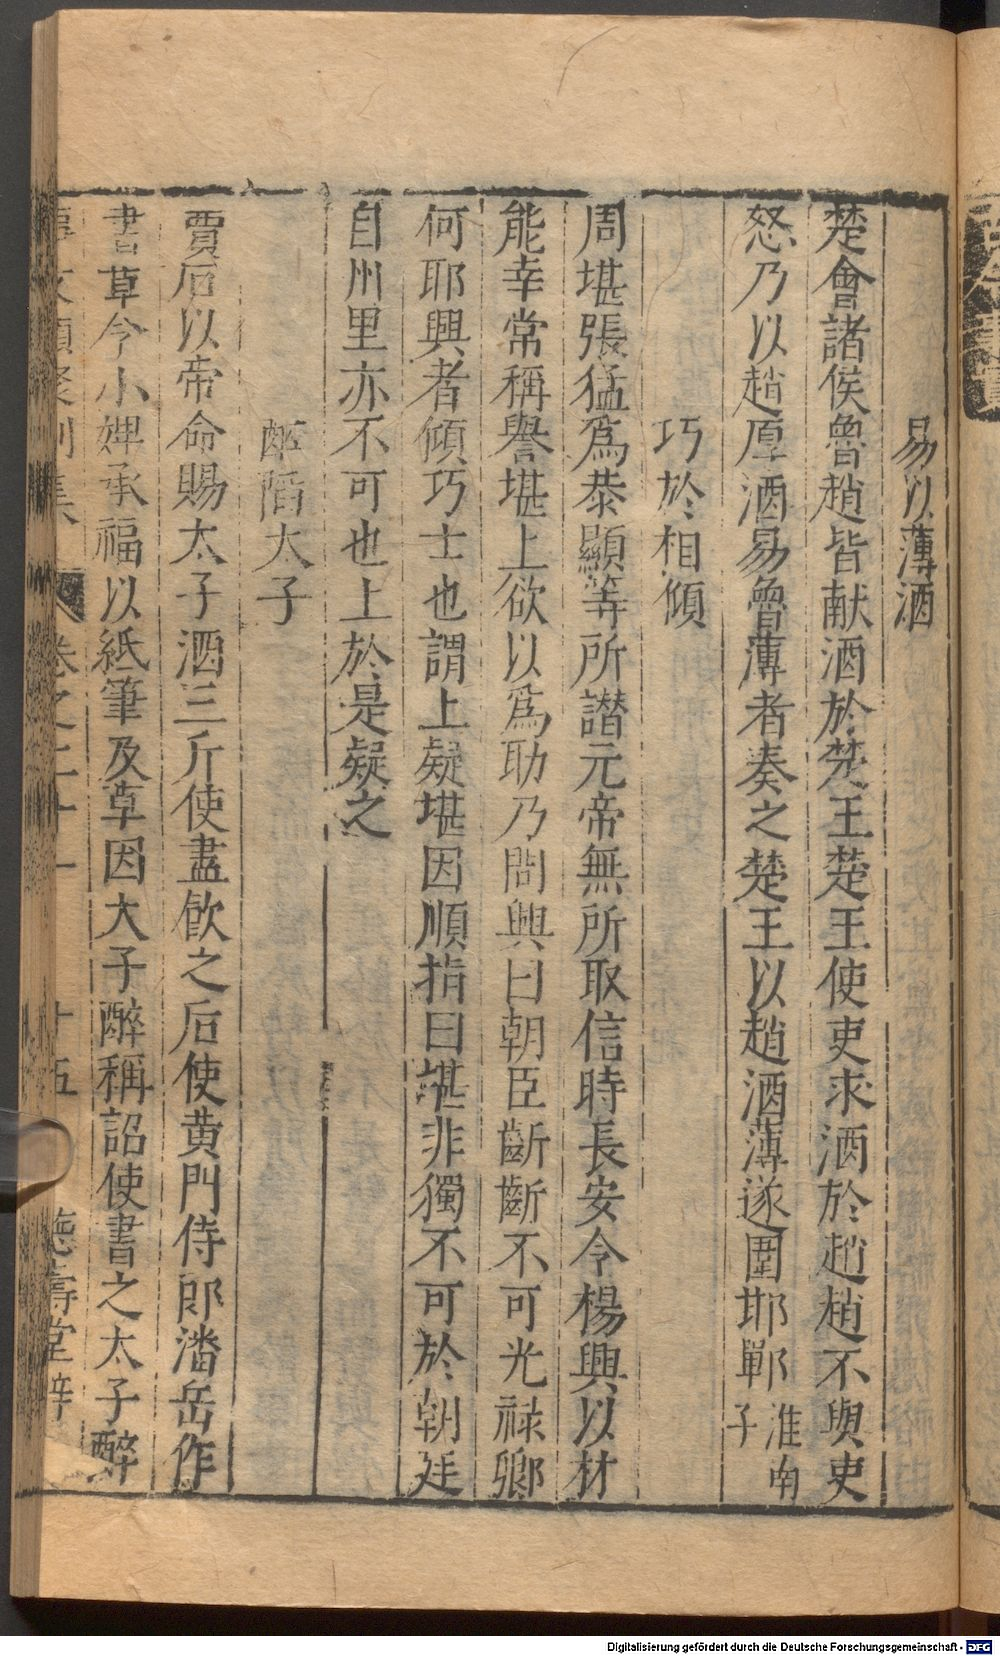 易以薄酒
楚會諸侯魯趙皆献酒於楚王楚王使吏求酒於趙趙不與吏
怒乃以趙厚酒易魯薄者奏之楚王以趙酒薄遂圍邯鄲淮南子
巧於相傾
周堪張猛爲恭顯等所譖元帝無所取信時長安令楊興以材
能幸常稱譽堪上欲以爲助乃問興曰朝臣齗齗不可光禄卿
何耶興者傾巧士也謂上疑堪因順指曰堪非獨不可於朝廷
自州里亦不可也上於是疑之
醉陷太子
賈后以帝命賜太子酒三斤使盡飲之后使黄門侍郎潘岳作
書草令小婢承福以紙筆及草因太子醉稱詔使書之太子醉
事文類聚別集 卷之二十一 十五 德壽堂梓
Digitalisierung gefördert durch die Deutsche Forschungsgemeinschaft - DFG